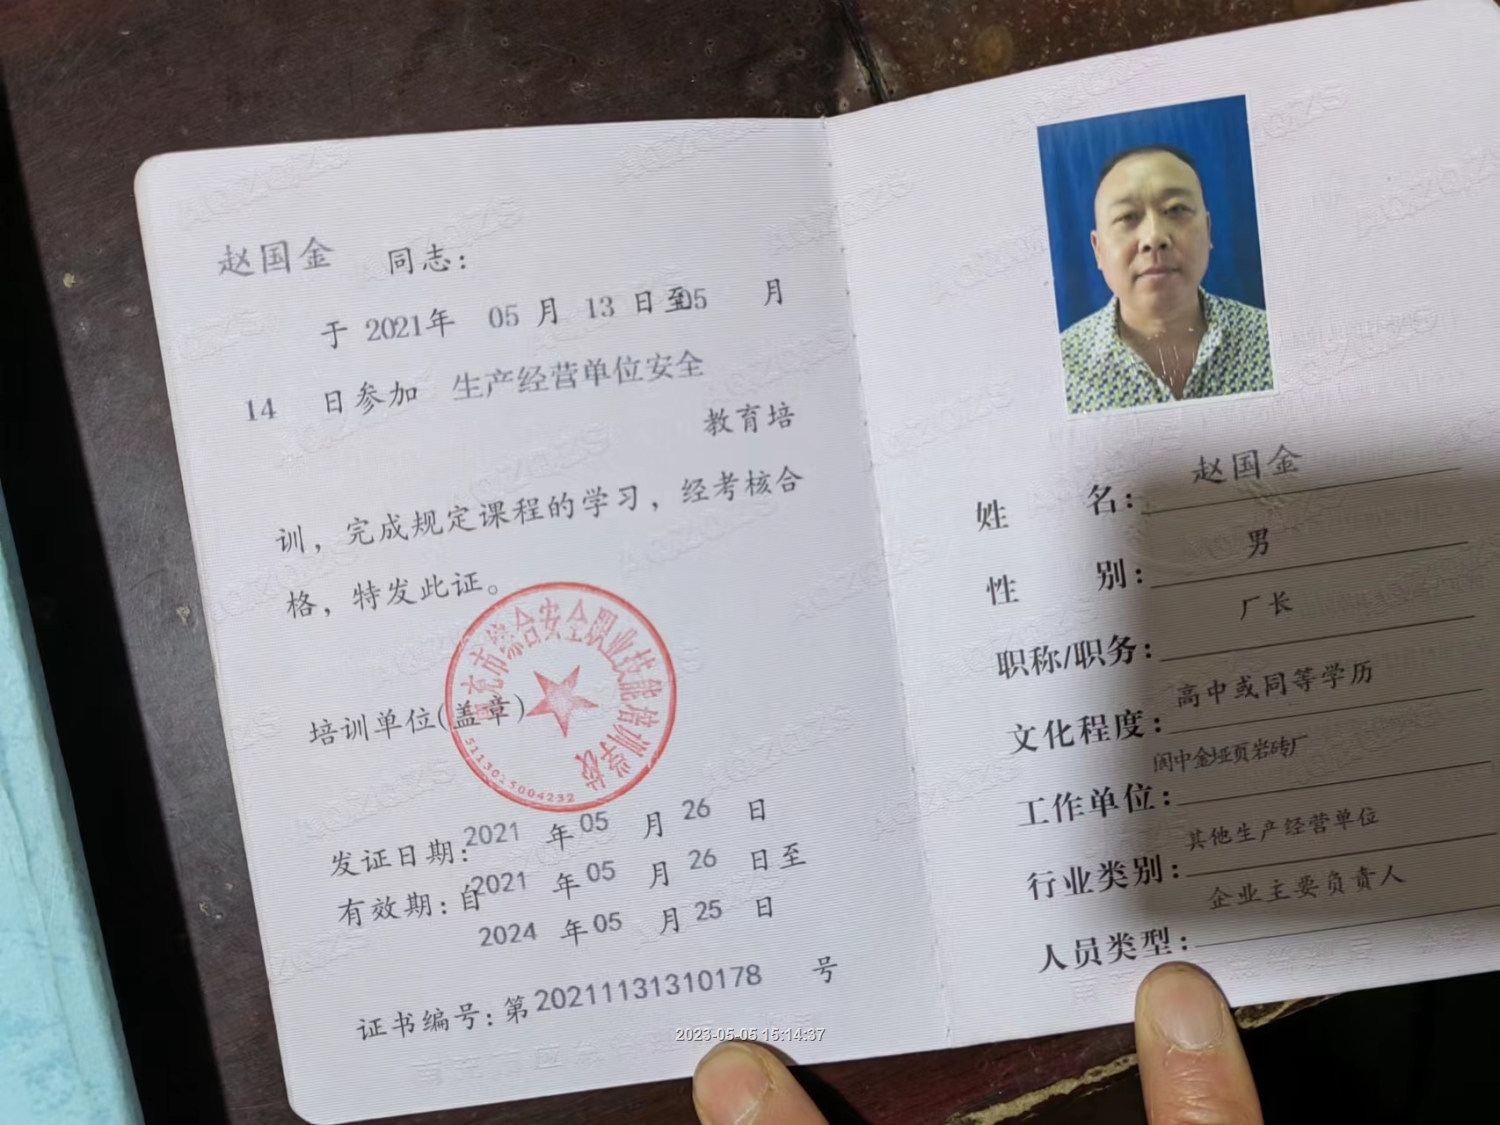 赵国金 同志:
于 2021年 05 月 13 日至05 月
14 日参加 生产经营单位安全
教育培
训，完成规定课程的学习，经考核合
格，特发此证。
南充市综合安全职业技能培训学校
5113025004232
培训单位(盖章)
发证日期:2021 年05 月 26 日
有效期:自2021 年05 月 26 日至
2024 年05 月25 日
证书编号:第20211131310178 号
姓 名:赵国金
性 别:男
职称/职务:厂长
文化程度:高中或同等学历
工作单位:阆中金垭页岩砖厂
行业类别:其他生产经营单位
人员类型:企业主要负责人
2023-05-05 15:14:37